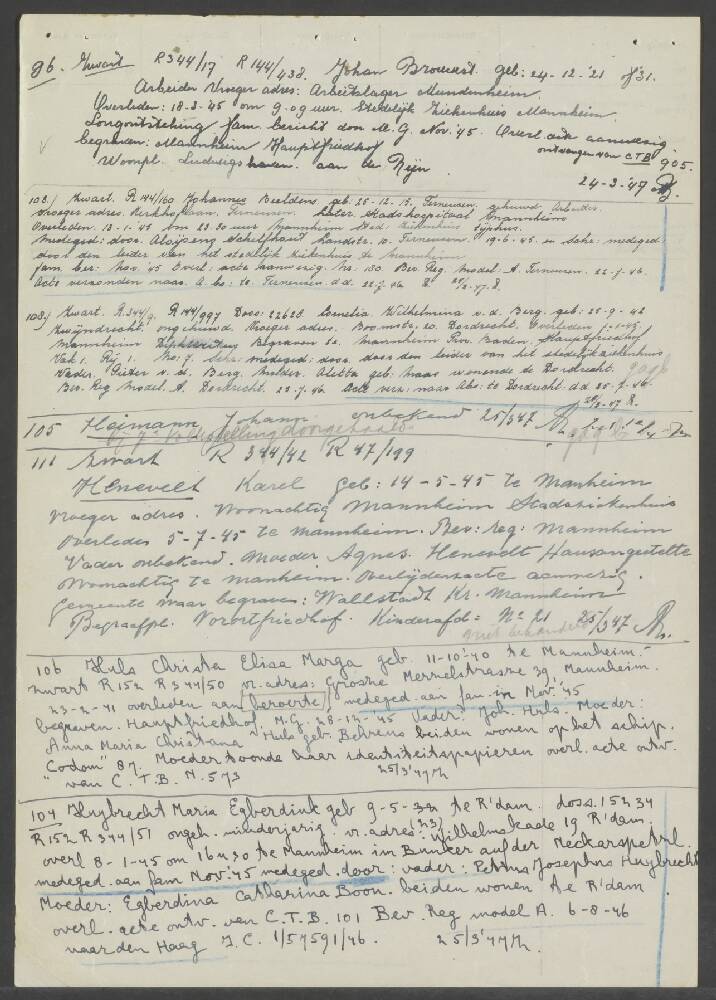 96. Zwart R344/17 R 144/438. Johan Brouwer. geb: 24-12-'21
Arbeider Vroeger adres: Arbeitslager Mundenheim
Overleden: 18-3-45 om 9.09 uur. Stedelijk Ziekenhuis Mannheim
Longontsteking fam. bericht door M.G. Nov. '45. Overl. acte aanwezig
begraven: Mannheim Hauptfriedhof ontvangen van C.T.B. 905.
Woonpl. Ludwigshaven aan de Rijn
24-3-'47
103) Zwart. R 144/160 Johannes Beeldens geb. 25-12-15. Terneuzen. gehuwd. Arbeider.
Vroeger adres. Kerkhoflaan. Terneuzen. Later Stadshospitaal Mannheim
Overleden. 13-1-45 om 23.30 uur Mannheim Sted. Ziekenhuis Typhus.
Medeged: door Aloijseng Schelfhout 10. Terneuzen 19-6-45. en Sche: medeged:
door den leider van het stedelijk ziekenhuis te Mannheim.
fam. ber: Nov. '45 Overl: acte aanwezig. No: 180 Bev. Reg. Model. A. Terneuzen. 22-7-46.
Acte verzonden naar A. bs: te: Terneuzen. d.d. 22-7-46
108) Zwart. R.344/9. R 144/997 Doss: 22628 Cornelia Wilhelmina v. d. Berg. geb: 25-9-42
Zwijndrecht ongehuwd. Vroeger adres. Boomstr. 20. Dordrecht. Overleden 7-1-45.
Mannheim Begraven te. Mannheim Prov. Baden. Hauptfriedhof
Vak 1. Rij 1. No: 7. Sche: medeged: door. door den leider van het stedelijk ziekenhuis
Vader. Pieter v. d. Berg. Moeder. Aletta geb. Maas wonende te Dordrecht.
Bev. Reg Model A. Dordrecht. 22-7-46. Acte verz: naar Abs: te Dordrecht. d.d. 25-7-46.
105 Heimann Johann onbekend 25/3'47
111 Zwart R 344/42 R 47/199
Henevelt Karel geb: 14-5-45 te Manheim
vroeger adres. Woonachtig Mannheim Stadsziekenhuis
overleden 5-7-45 te Mannheim. Bev: reg: Mannheim
Vader onbekend. Moeder Agnes. Henevelt Hausangestelte
Woonachtig te Manheim. Overlijdensacte aanwezig.
Gemeente waar begrave: Wallstadt Kr. Mannheim
Begraafpl. Vorortfriedhof. Kinderafd= No 21 25/3'47
niet behandeld
106 Huls Christa Elisa Marga geb. 11-10-'40 te Mannheim.
Zwart R152 R344/50 vr. adres: Grosze Merzelstrasze 39, Mannheim.
23-2-41 overleden aan beroerte, medeged. aan fam. in Nov. '45
begraven. Hauptfriedhof. M.G. 28-12-'45 Vader: Joh. Huls. Moeder:
Anna Maria Christiana Huls geb. Behrens beiden wonen op het schip.
"Codom" 87. Moeder toonde haar identiteitspapieren overl. acte ontv.
van C.T.B. N. 573 25/3'47
104 Huybrecht Maria Egberdink geb 9-5-32 te R'dam. doss. 15234
R152 R344/51 ongeh. minderjarig. vr. adres: Wilhelmskade 19 R'dam.
overl 8-1-45 om 16u30 te Mannheim im Bunker auf der Neckarspitze.
medeged. aan fam Nov. '45 medeged. door: vader: Petrus Josephus Huybrecht
Moeder: Egberdina Catharina Boon. beiden wonen te R'dam
overl. acte ontv. van C.T.B. 101 Bev. Reg model A. 6-8-46
naar den Haag J.C. 1/57591/46. 25/3'47